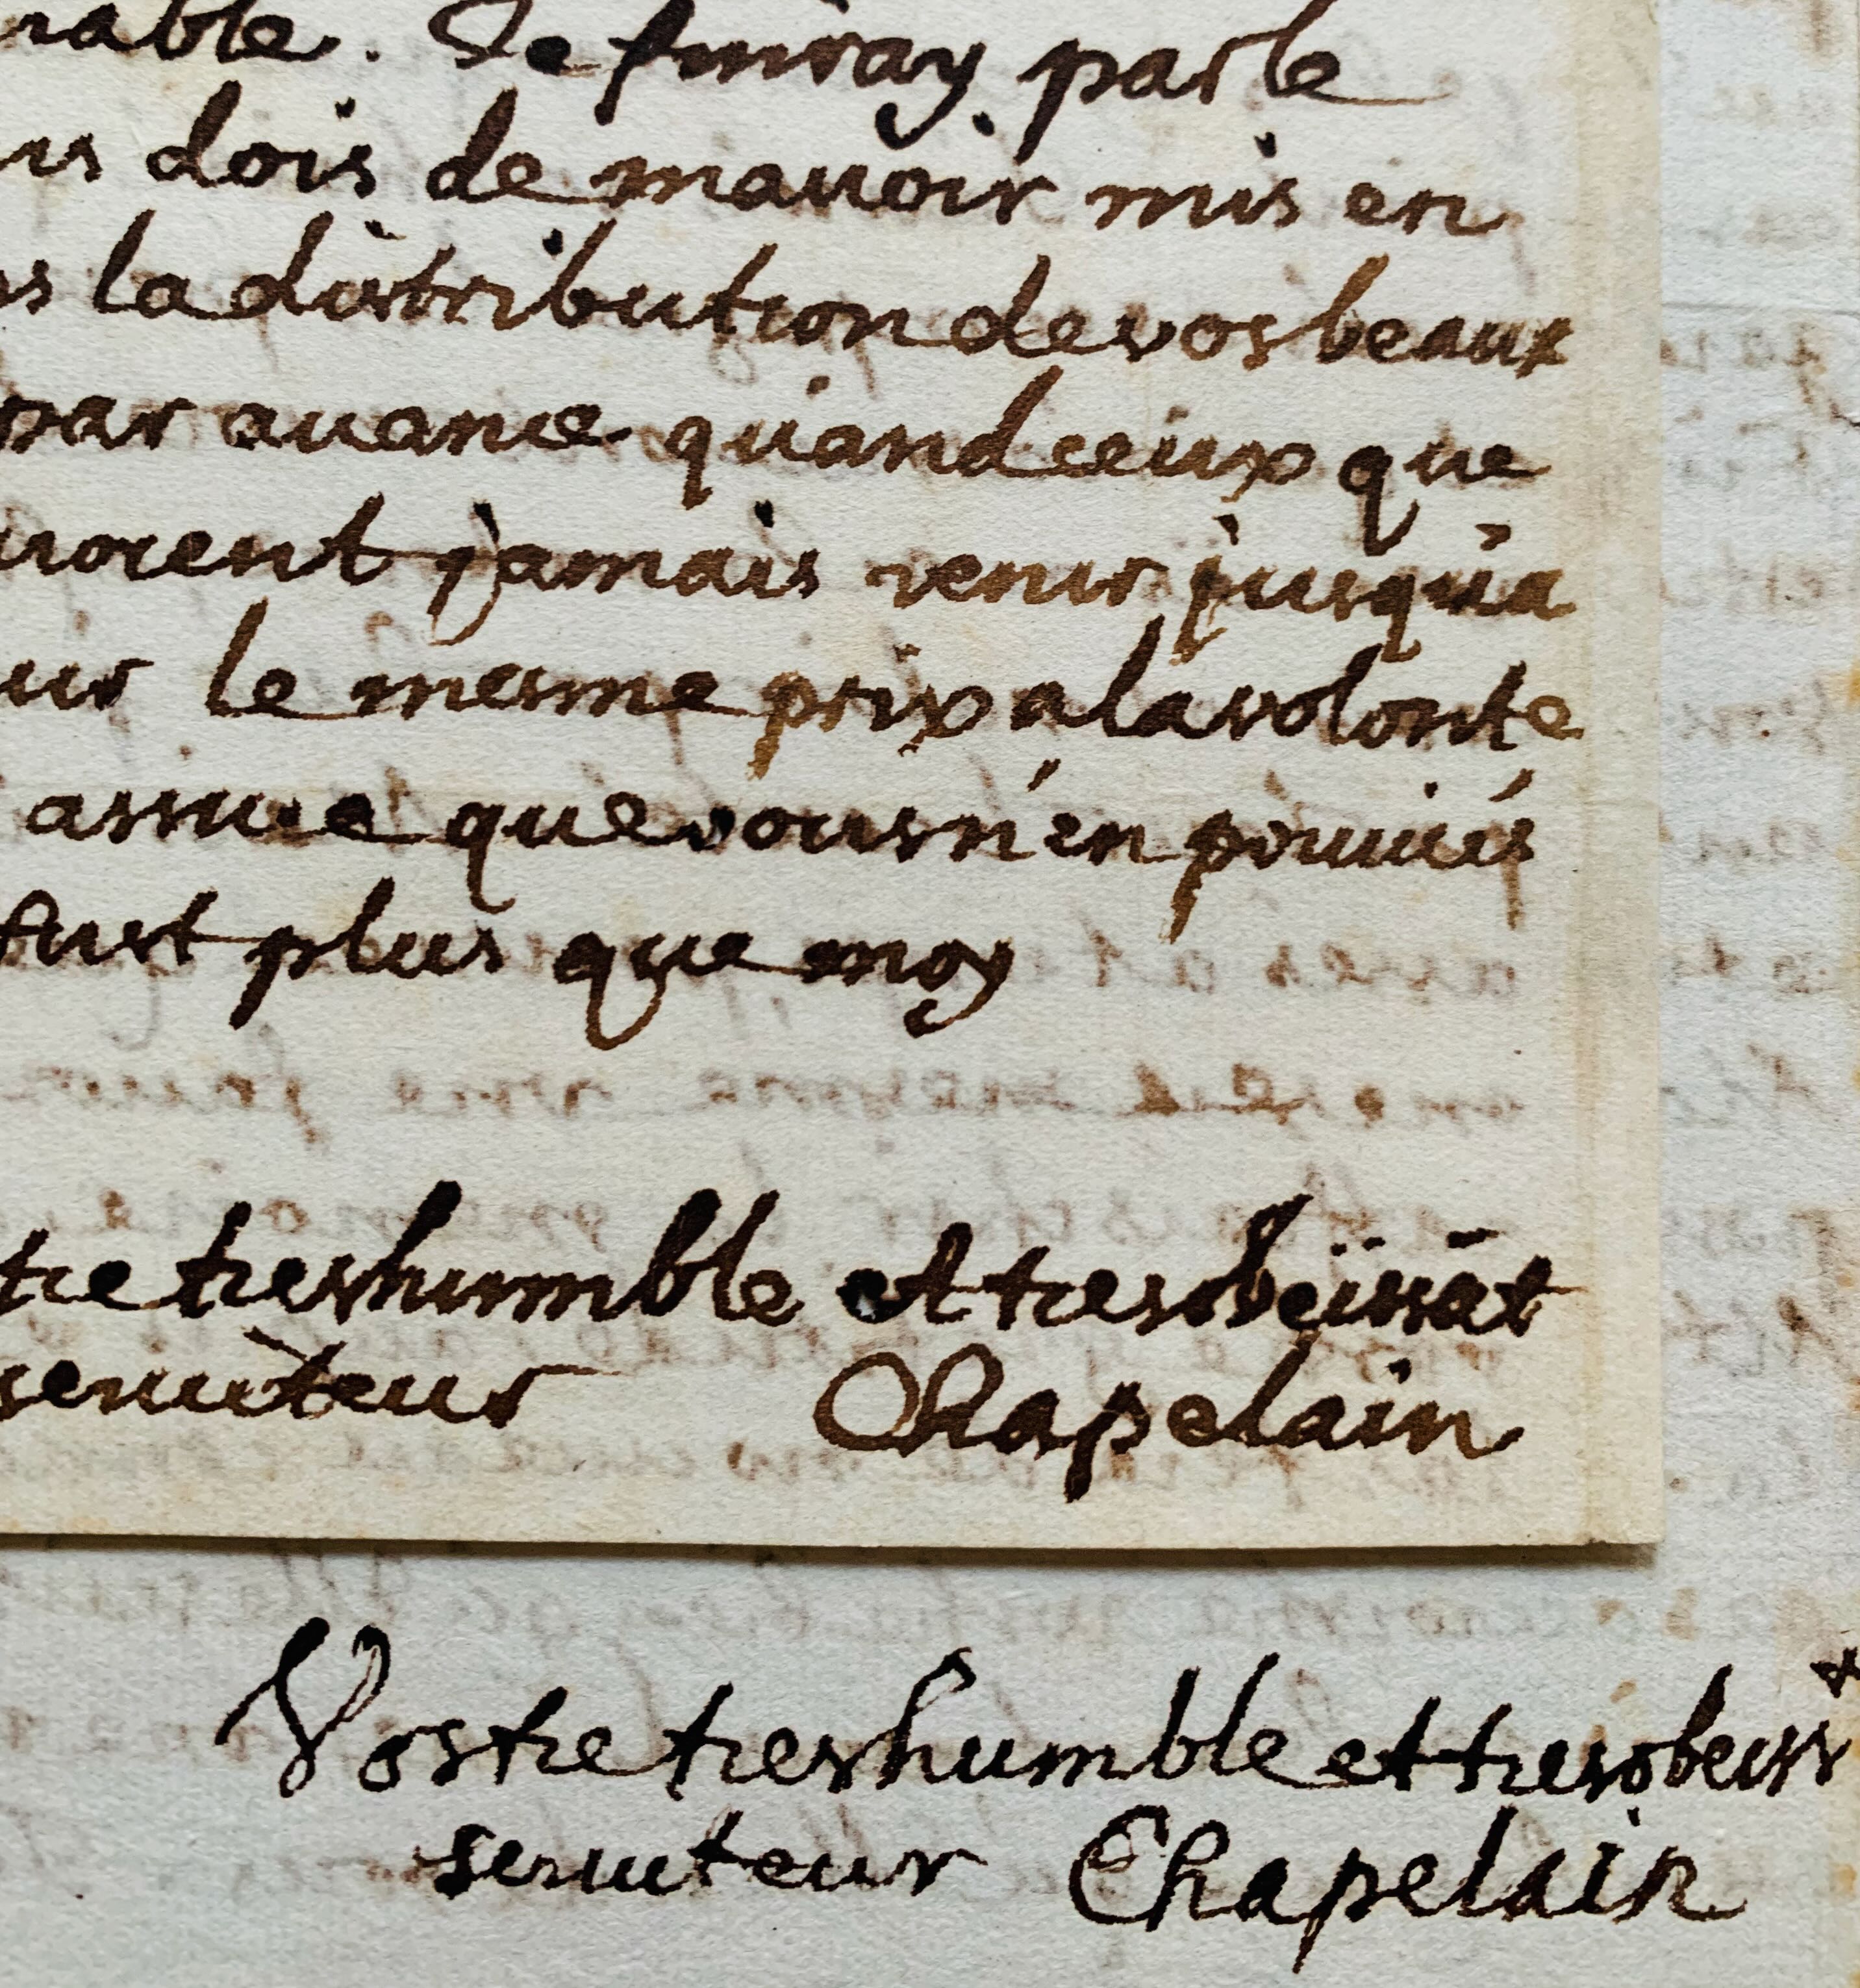 rable. Je finiray par le
us dois de mauoir mis en
os la distribution de vos beaux
par auance quand ceux que
uroient jamais venir jusqu'a
ur le mesme prix a la volonte
assure que vous n'en pouuiés
fust plus que moy
tre treshumble et tresobeïssãt
seruiteur Chapelain
Vostre treshumble et tresobeisst
seruiteur Chapelain